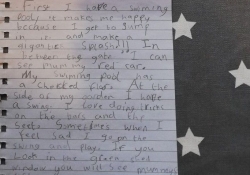 First I have a swimming
pool, it makes me happy
because I get to jump
in it and make a
Splash!! In
between the gate I can
see mum my red car.
My swimming pool has
a checked floor. At the
side of my garden I have
a swing. I love doing tricks
on the bars and the
seets. Sometimes when I
feel sad I go on the
swing and play. If you
look in the green
window you will see mummys